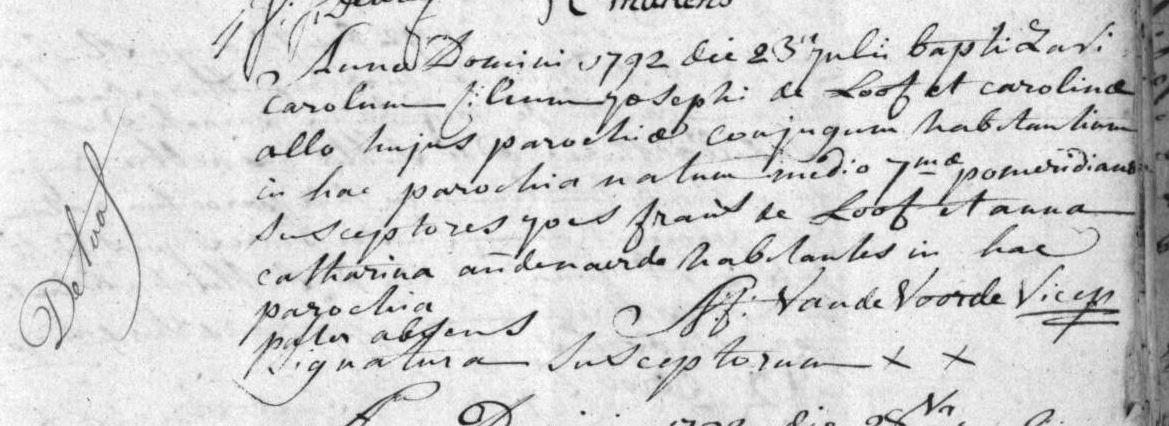 martens
De Loof
Anno Domini 1792 die 23 julii baptizavi
carolum filium josephi de Loof et carolinæ
allo hujus parochiæ conjugum habitantium
in hac parochia natum medio 7mæ pomeridianæ
susceptores joes frans de Loof et anna
catharina audenaerde habitantes in hac
parochia J: f: Van de Voorde Vicep
pater absens
signatura susceptorum x x
Domini 1792 die 28